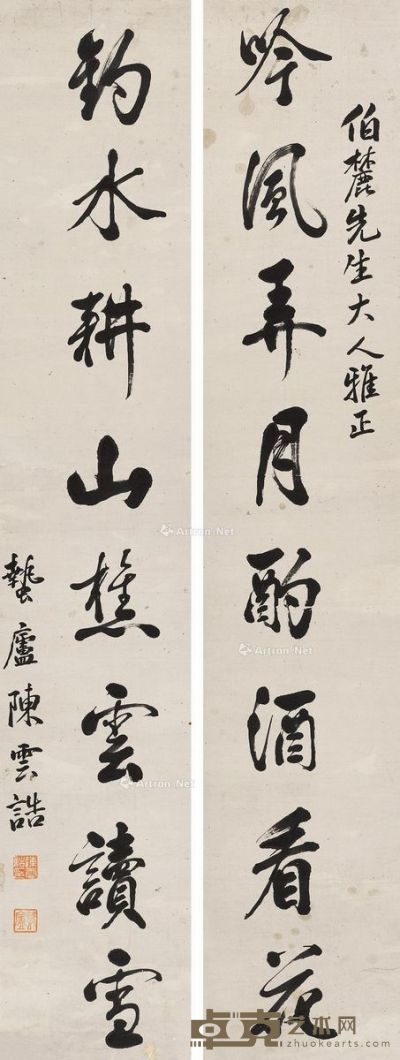 伯麓先生大人雅正
吟風弄月酌酒看花
釣水耕山樵雲讀雪
蟄廬陳雲誥
Artron.Net
Artron.Net
Artron.Net
Artron.Net
卓克艺术网
www.zhuokearts.com